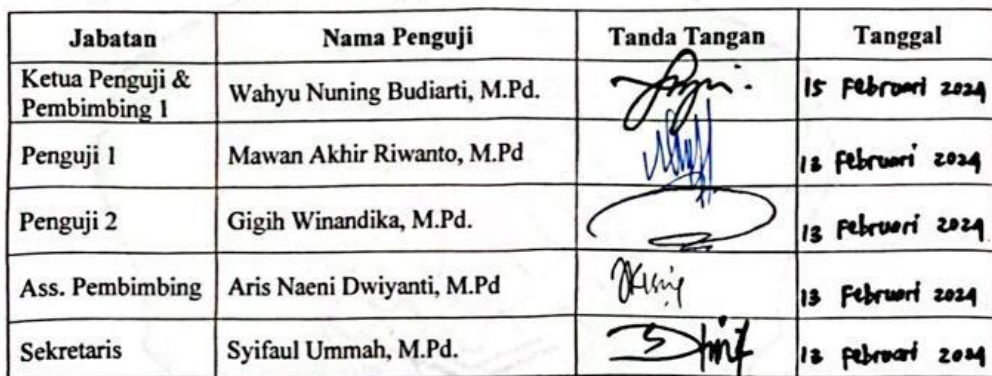 Jabatan Nama Penguji Tanda Tangan Tanggal
Ketua Penguji &
Pembimbing 1 Wahyu Nuning Budiarti, M.Pd. 15 Februari 2024
Penguji 1 Mawan Akhir Riwanto, M.Pd 13 Februari 2024
Penguji 2 Gigih Winandika, M.Pd. 13 Februari 2024
Ass. Pembimbing Aris Naeni Dwiyanti, M.Pd 13 Februari 2024
Sekretaris Syifaul Ummah, M.Pd. 13 Februari 2024